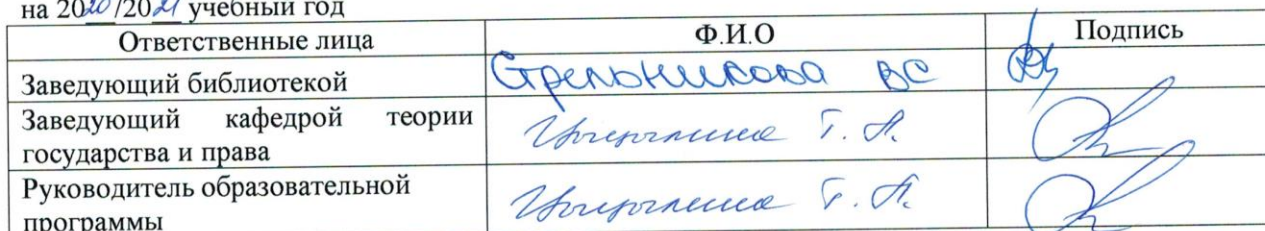 на 2020/2021 учебный год
Ответственные лица Ф.И.О Подпись
Заведующий библиотекой Стрельникова ВС
Заведующий кафедрой теории
государства и права Т. А.
Руководитель образовательной
программы Т. А.